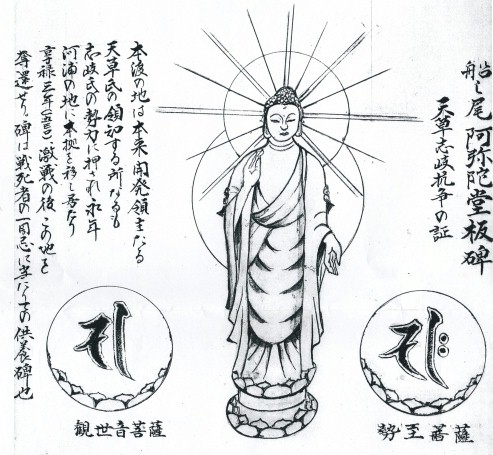 船之尾阿弥陀堂板碑
天草志岐抗争の証
本渡の地は本来開発領主たる
天草氏の領知する所なるも
志岐氏の勢力に押され永年
河浦の地に本拠を移し居たり
享禄三年 激戦の後この地を
奪還せり 碑は戦死者の一周忌に たりての供養碑也
勢至菩薩
観世音菩薩